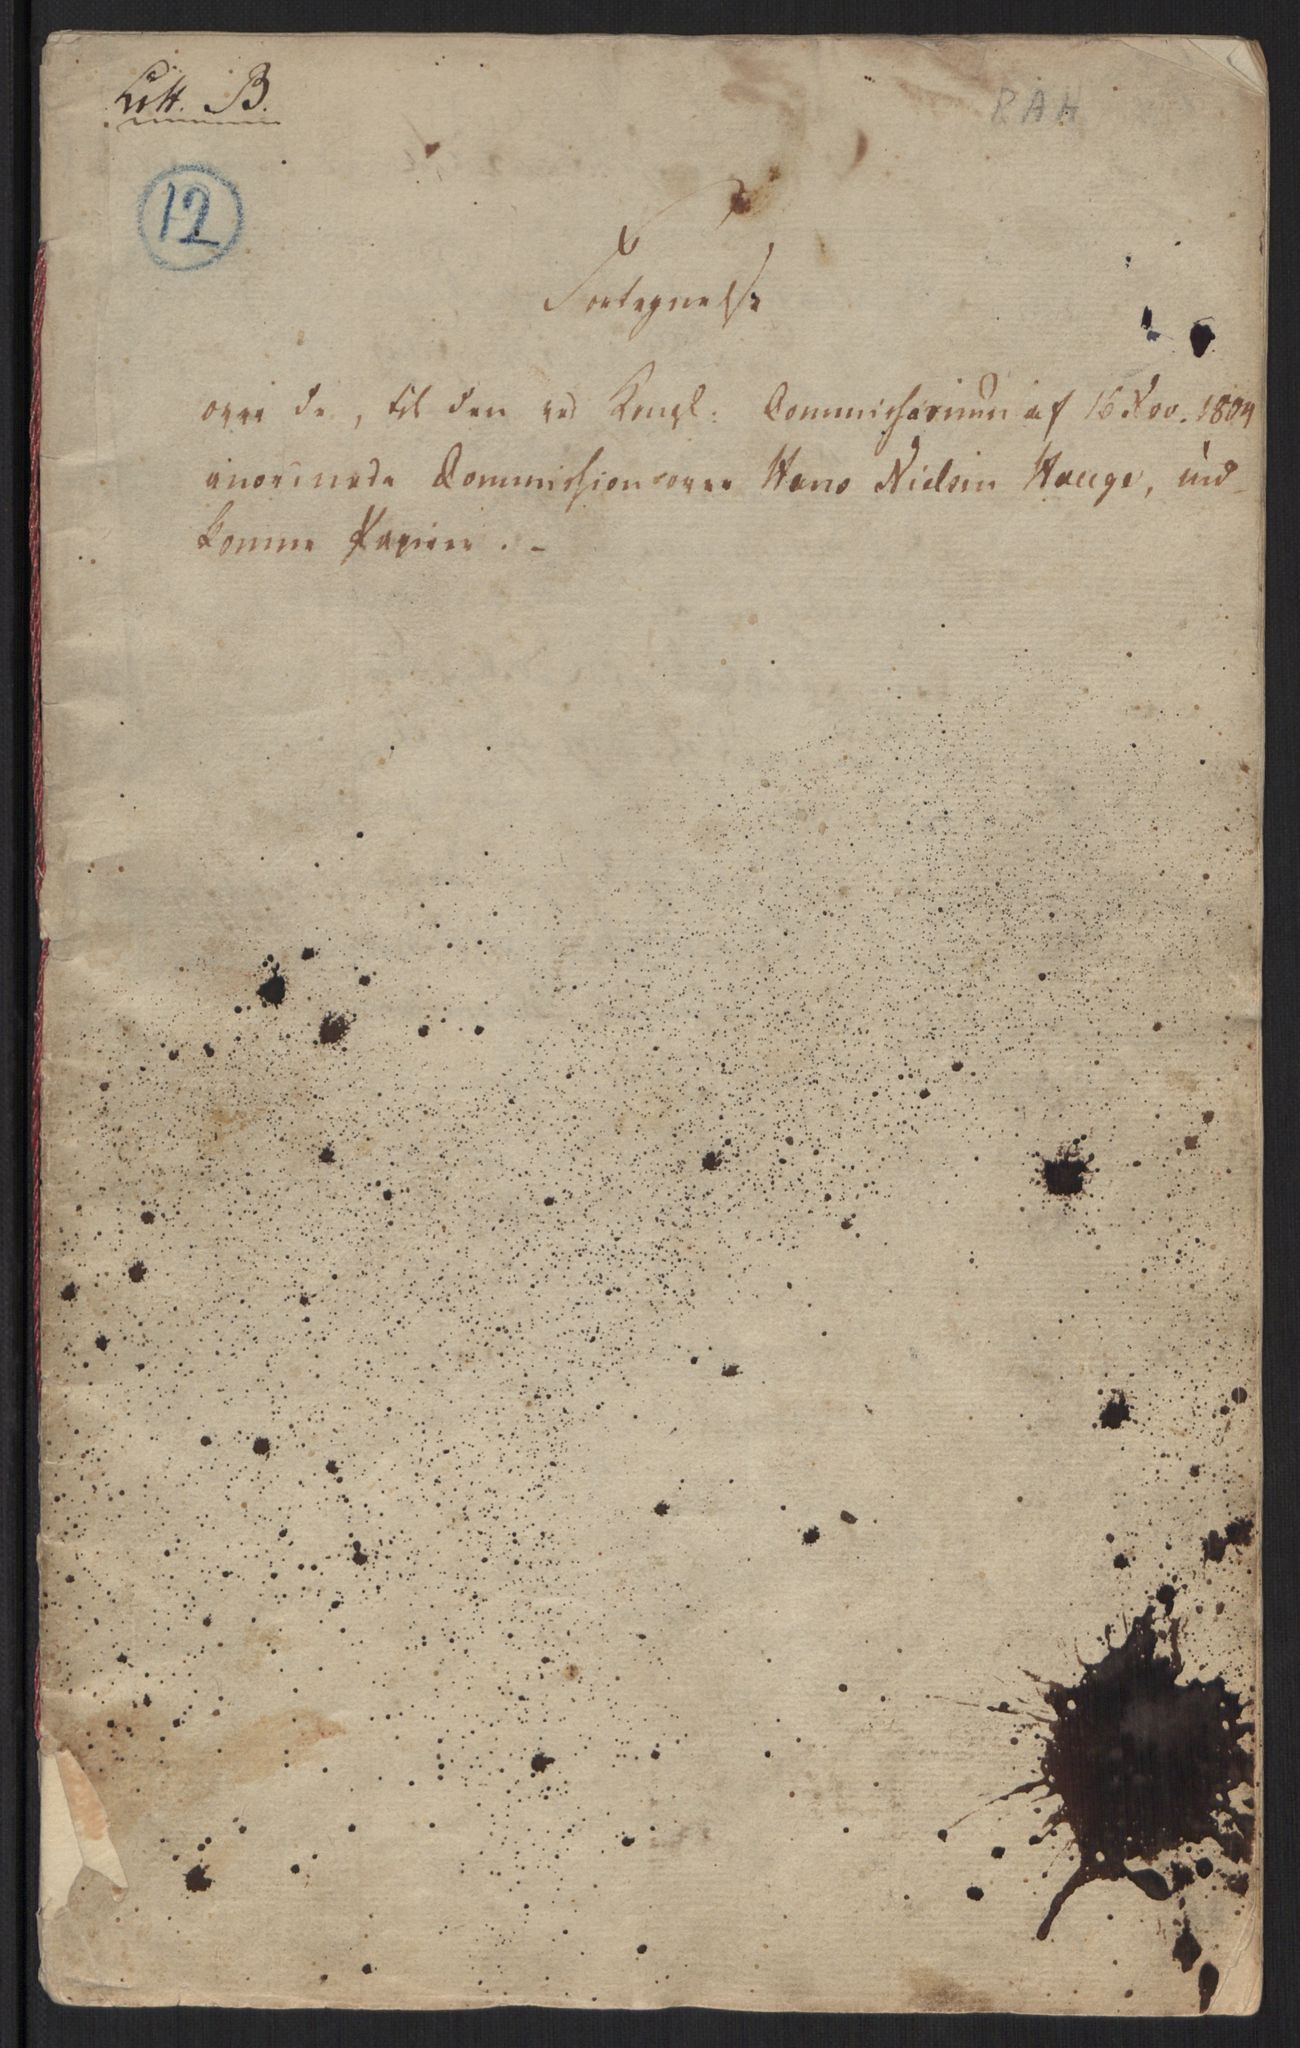 Litt. B.
RAH
12
Fortegnelse
over de, til den ved Kongl. Commissorium af 16 Nov. 1804
anordnede Commission over Hans Nielsen Hauge, ind-
komne Papirer. -